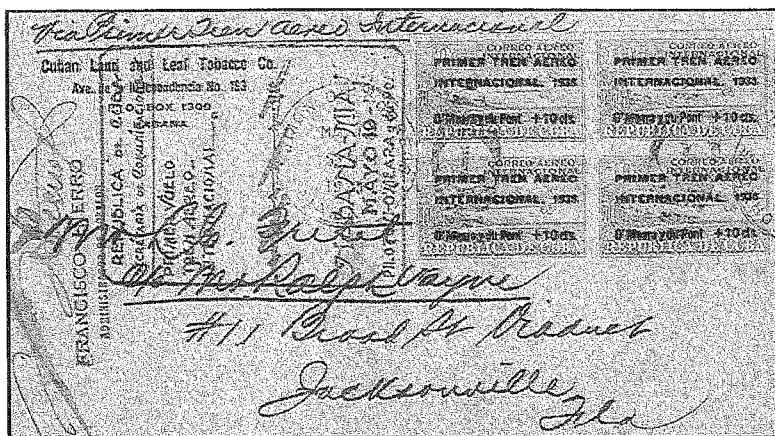 Via Primer Tren Aereo Internacional
Cuban Land and Leaf Tobacco Co.
Ave. de la Independencia No. 193
BOX 1309
HABANA
FRANCISCO FIERRO
REPUBLICA DE CUBA
SECRETARIA DE Comunicaciones
PRIMER VUELO
TREN AEREO
INTERNACIONAL
HABANA-MIAMI
MAYO
CORREO AEREO
PRIMER TREN AEREO
INTERNACIONAL. 1935
O'Meara y du Pont +10 cts.
REPUBLICA DE CUBA
CORREO AEREO
PRIMER TREN AEREO
INTERNACIONAL. 1935
O'Meara y du Pont +10 cts.
REPUBLICA DE CUBA
CORREO AEREO
PRIMER TREN AEREO
INTERNACIONAL. 1935
O'Meara y du Pont +10 cts.
REPUBLICA DE CUBA
CORREO AEREO
PRIMER TREN AEREO
INTERNACIONAL. 1935
O'Meara y du Pont +10 cts.
REPUBLICA DE CUBA
c/o Mr Ralph Wayne
#11 Broad St Viaduct
Jacksonville
Fla